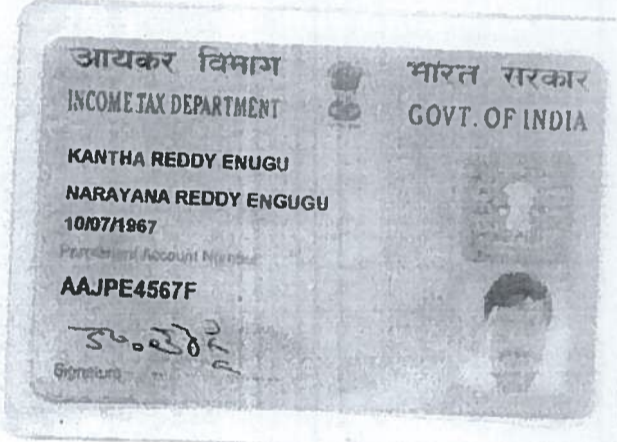 आयकर विभाग
भारत सरकार
INCOME TAX DEPARTMENT
GOVT. OF INDIA
KANTHA REDDY ENUGU
NARAYANA REDDY ENGUGU
10/07/1967
Permanent Account Number
AAJPE4567F
Signature